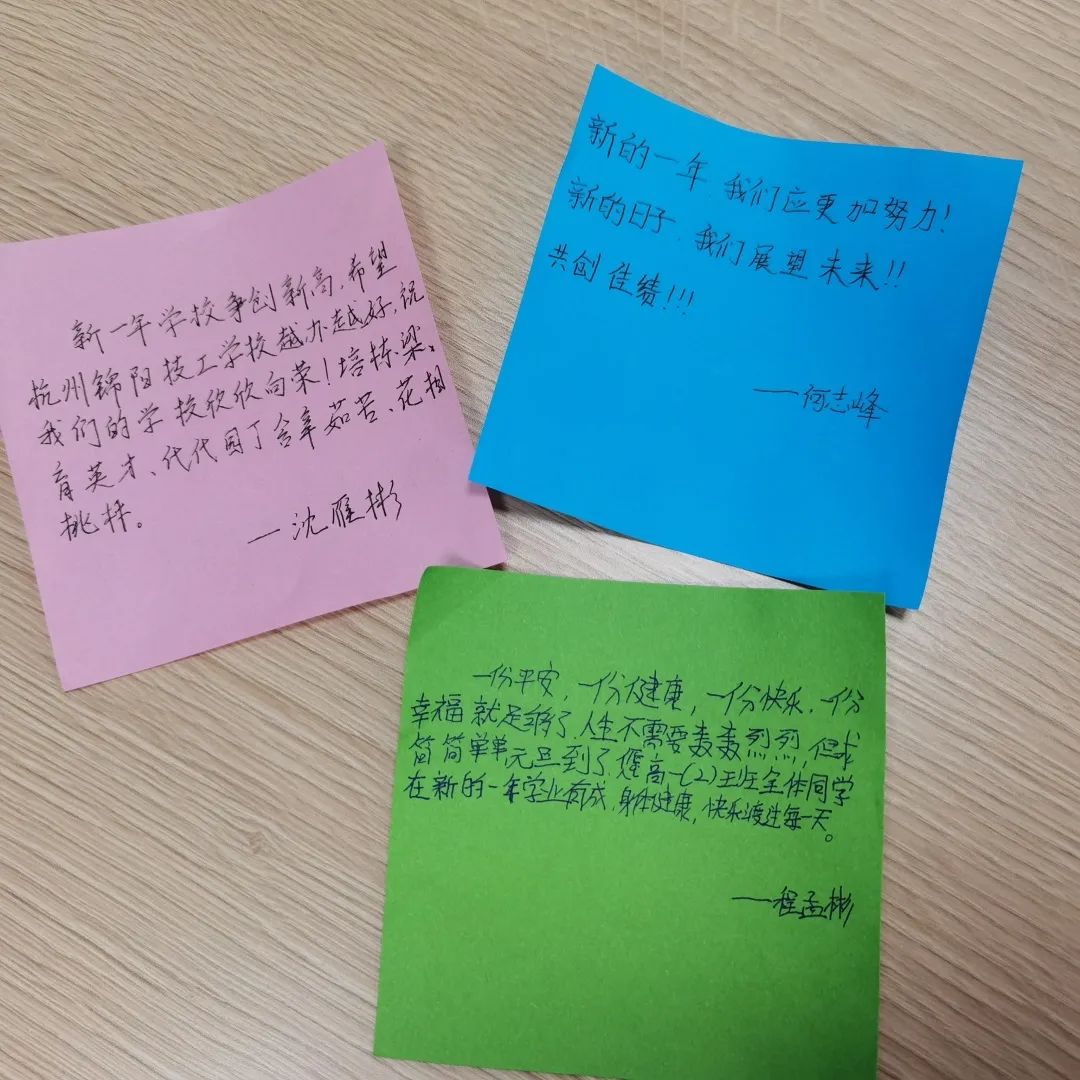 新一年学校争创新高,希望
杭州锦阳技工学校越办越好,祝
我们的学校欣欣向荣!培栋梁、
育英才、代代园丁含辛茹苦、花相
挑林。
—沈雁彬
新的一年 我们应更加努力!
新的日子 我们展望未来!!
共创佳绩!!!
——何志峰
一份平安,一份健康,一份快乐,一份
幸福就足够了,人生不需要轰轰烈烈,但求
简简单单,元旦到了,愿高一(2)班全体同学
在新的一年学业有成,身体健康,快乐渡过每一天。
——程孟彬